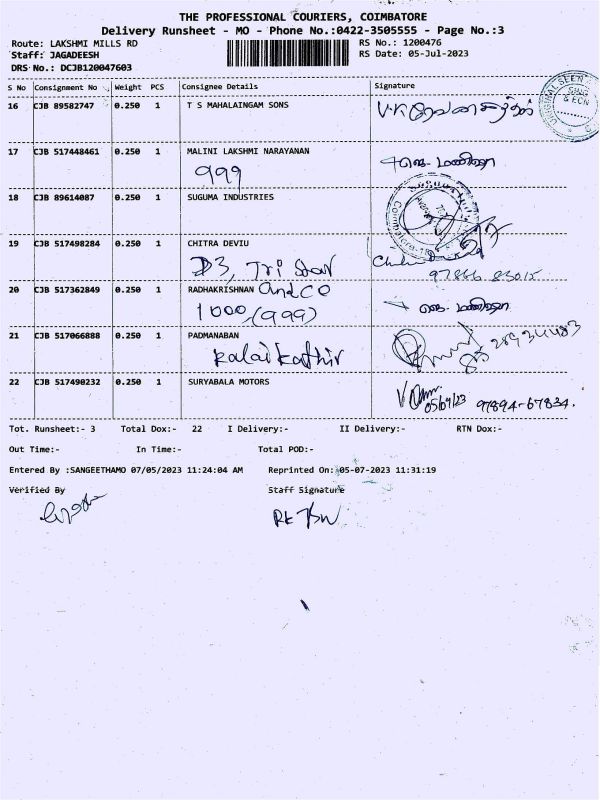 THE PROFESSIONAL COURIERS, COIMBATORE
Delivery Runsheet - MO - Phone No.:0422-3505555 - Page No.:3
Route: LAKSHMI MILLS RD RS No.: 1200476
Staff: JAGADEESH RS Date: 05-Jul-2023
DRS No.: DCJB120047603
S No Consignment No Weight PCS Consignee Details Signature
16 CJB 89582747 0.250 1 T S MAHALAINGAM SONS
17 CJB 517448461 0.250 1 MALINI LAKSHMI NARAYANAN
999
18 CJB 89614087 0.250 1 SUGUMA INDUSTRIES
19 CJB 517498284 0.250 1 CHITRA DEVIU
D3, Tri Star
20 CJB 517362849 0.250 1 RADHAKRISHNAN and co
1000, (999)
21 CJB 517066888 0.250 1 PADMANABAN
Kalai kathir
22 CJB 517490232 0.250 1 SURYABALA MOTORS
05/07/23 97894-67834.
Tot. Runsheet:- 3 Total Dox:- 22 I Delivery:- II Delivery:- RTN Dox:-
Out Time:- In Time:- Total POD:-
Entered By :SANGEETHAMO 07/05/2023 11:24:04 AM Reprinted On: 05-07-2023 11:31:19
Verified By Staff Signature